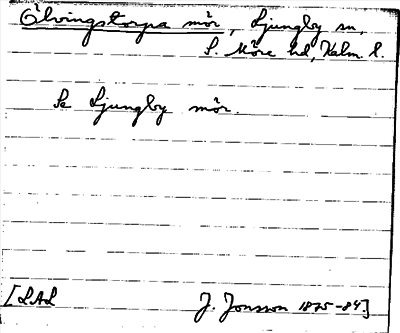 Ölvingstorpa mör, Ljungby sn,
S. Möre hd, Kalm. l.
Se Ljungby mör.
[LAL J. Jonsson 1875-84]